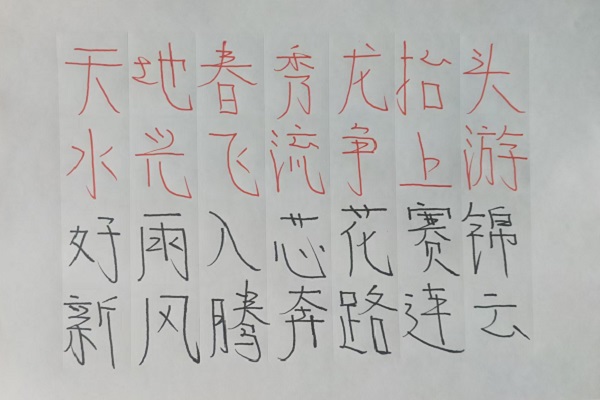 天地春秀龙抬头
水兴飞流争上游
好雨入芯花赛锦
新风腾奔路连云